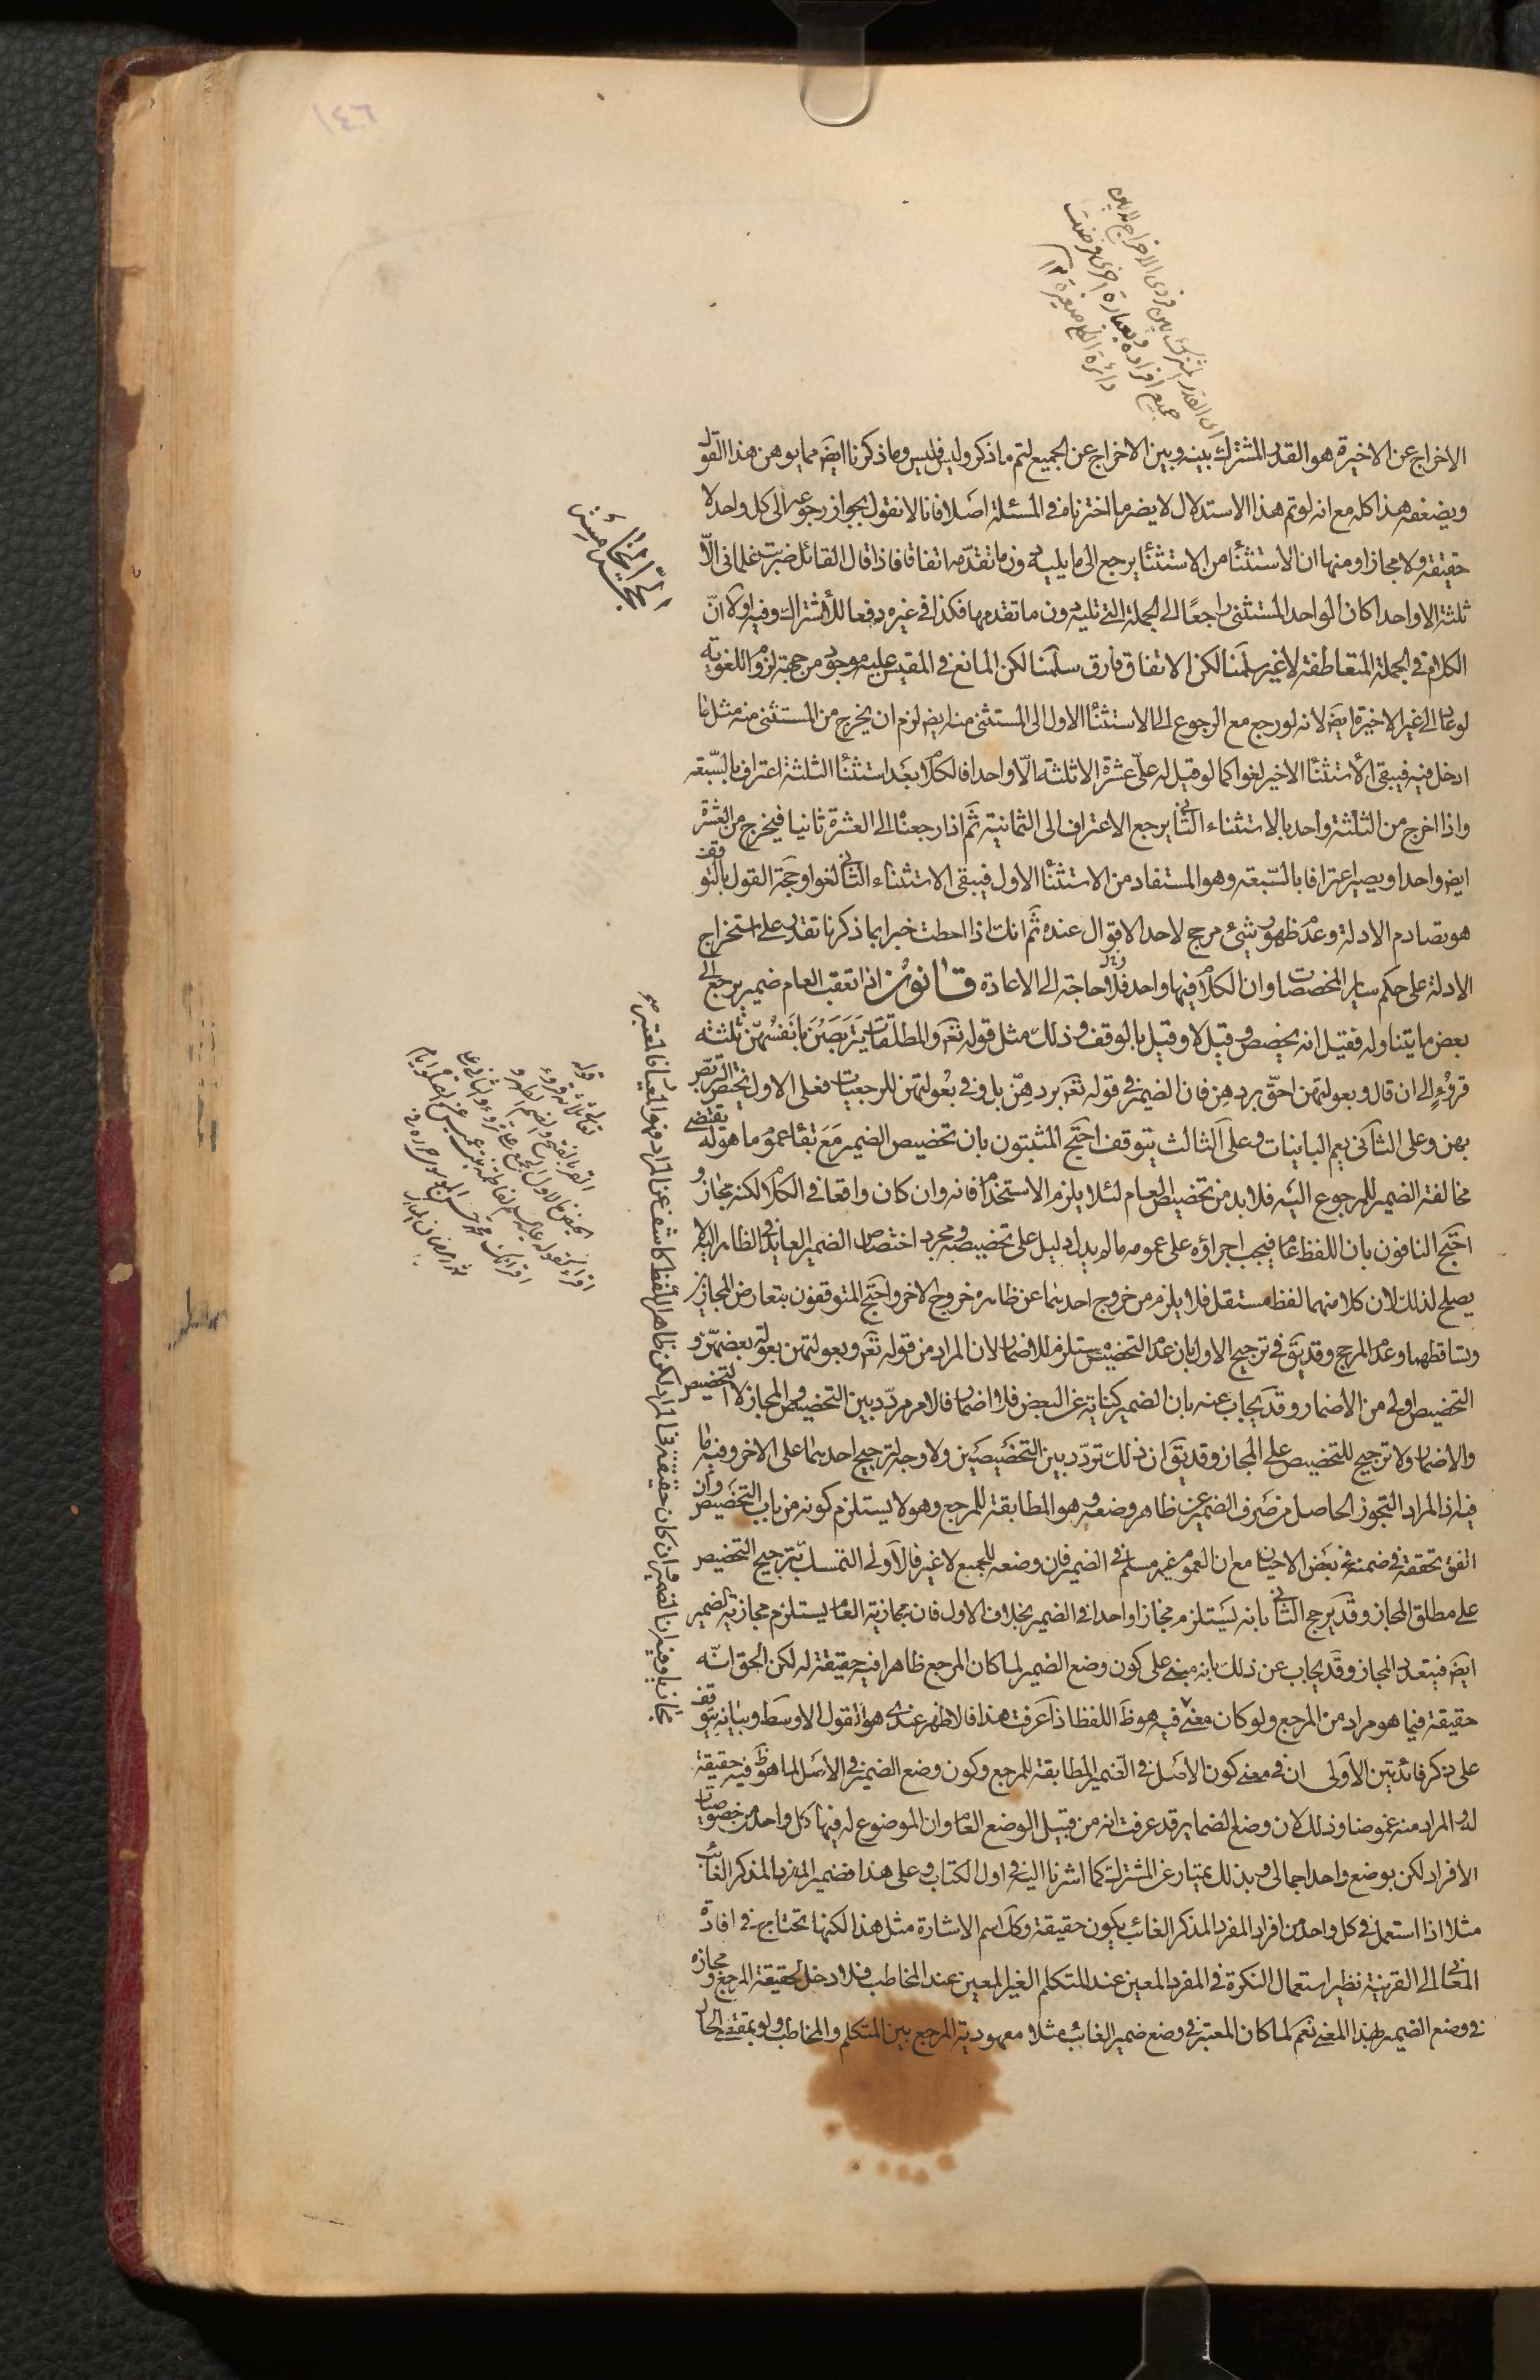 ١٤٦
الاخراج عن الاخيرة هو القدر المشترك بينه وبين الاخراج عن الجميع لتم ما ذكر وليس فليس وما ذكرنا ايضا مما يوهن هذا القول
ويضعفه هذا كله مع انه لو تم هذا الاستدلال لا يضر ما اخترناه في المسئلة اصلا فانا لا نقول بجواز رجوعه الى كل واحد لا
حقيقة ولا مجازا ومنها ان الاستثناء من الاستثناء يرجع الى ما يليه دون ما تقدمه اتفاقا فاذا قال القائل ضربت غلماني الّا
ثلثة الا واحدا كان الواحد المستثنى راجعا الى الجملة التي تليه دون ما تقدمها فكذا في غيره دفعا للاشتراك وفيه اولا انّ
الكلام في الجملة المتعاطفة لا غير سلّمنا لكن الاتفاق فارق سلّمنا لكن المانع في المقيس عليه موجود من جهة لزوم اللغوية
لو عاد الى غير الاخيرة ايضا لانه لو رجع مع الرجوع الى الاستثناء الاول الى المستثنى منه ايضا لزم ان يخرج من المستثنى منه مثل ما
ادخل فيه فيبقى الاستثناء الاخير لغوا كما لو قيل له علىّ عشرة الا ثلثة الّا واحدا فالكلام بعد استثناء الثلثة اعتراف بالسّبعة
واذا اخرج من الثلثة واحد بالاستثناء الثاني يرجع الاعتراف الى الثمانية ثمّ اذا رجعنا الى العشرة ثانيا فيخرج من العشرة
ايضا واحد او يصير اعترافا بالسّبعة وهو المستفاد من الاستثناء الاول فيبقى الاستثناء الثاني لغوا وحجّة القول بالتوقف
هو تصادم الادلة وعدم ظهور شيئ مرجح لاحد الاقوال عنده ثمّ انك اذا احطت خبرا بما ذكرنا تقدر على استخراج
الادلة على حكم ساير المخصصات وان الكلام فيها واحد فلا حاجة الى الاعادة قانون اذا تعقب العام ضمير يرجع الى
بعض ما يتناوله فقيل انه يخصص وقيل لا وقيل بالوقف وذلك مثل قوله تعالى والمطلقات يتربصن بانفسهنّ ثلثة
قروءٍ الى ان قال وبعولتهن احقّ بردهن فان الضمير في قوله تعالى بردهنّ بل وفي بعولتهن للرجعيات فعلى الاول يختص التربّص
بهن وعلى الثاني يعم الباينات وعلى الثالث يتوقف احتجّ المثبتون بان تخصيص الضمير مع بقاء عموم ما هو له يقتضي
مخالفة الضمير للمرجوع اليه فلا بد من تخصيص العام لئلا يلزم الاستخدام فانه وان كان واقعا في الكلام لكنه مجاز و
احتجّ النافون بان اللفظ عام فيجب اجراؤه على عمومه ما لم يدل دليل على تخصيصه ومجرد اختصاص الضمير العايد في الظاهر اليه لا
يصلح لذلك لان كلا منهما لفظ مستقل فلا يلزم من خروج احدهما عن ظاهره خروج الاخر واحتجّ المتوقفون بتعارض المجازين
وتساقطهما وعدم المرجح وقد يقال في ترجيح الاول بان عدم التخصيص مستلزم للاضمار لان المراد من قوله تعالى وبعولتهن بعولة بعضهنّ و
التخصيص اولى من الاضمار وقد يجاب عنه بان الضمير كناية عن البعض فلا اضمار فالامر مردّد بين التخصيص والمجاز لا التخصيص
والاضمار ولا ترجيح للتخصيص على المجاز وقد يقال ان ذلك تردّد بين التخصيصين ولا وجه لترجيح احدهما على الاخر وفيه ما
فيه اذ المراد التجوز الحاصل من صرف الضمير عن ظاهر وضعه وهو المطابقة للمرجع وهو لا يستلزم كونه من باب التخصيص وان
اتفق تحققه في ضمنه في بعض الاحيان مع ان العموم غير مسلم في الضمير فان وضعه للجميع لا غير فالاولى التمسك بترجيح التخصيص
على مطلق المجاز وقد يرجح الثاني بانه يستلزم مجازا واحدا في الضمير بخلاف الاول فان مجازية العام يستلزم مجازية الضمير
ايضا فيتعدد المجاز وقد يجاب عن ذلك بانه مبني على كون وضع الضمير لما كان المرجع ظاهرا فيه حقيقة له لكن الحق انّه
حقيقة فيما هو مراد من المرجع ولو كان معنى فيه هو ظاهر اللفظ اذا عرفت هذا فالاظهر عندى هو القول الاوسط وبيانه يتوقف
على ذكر فائدتين الاولى ان في معنى كون الاصل في الضمير المطابقة للمرجع وكون وضع الضمير في الاصل لما هو ظاهر فيه حقيقة
له او المراد منه غموضا وذلك لان وضع الضماير قد عرفت انه من قبيل الوضع العام وان الموضوع له فيها كل واحد من خصوصيات
الافراد لكن بوضع واحد اجمالى وبذلك يمتاز عن المشترك كما اشرنا اليه في اول الكتاب وعلى هذا فضمير المفرد المذكر الغائب
مثلا اذا استعمل في كل واحد من افراد المفرد المذكر الغائب يكون حقيقة وكذا اسم الاشارة مثل هذا لكنها تحتاج في افادة
المعاني الى القرينة نظير استعمال النكرة في المفرد المعين عند المتكلم الغير المعين عند المخاطب فلا دخل لحقيقة المرجع ومجازه
في وضع الضمير بهذا المعنى نعم لما كان المعتبر في وضع ضمير الغائب مثلا معهودية المرجع بين المتكلم والمخاطب ولو بمقتضى الحال